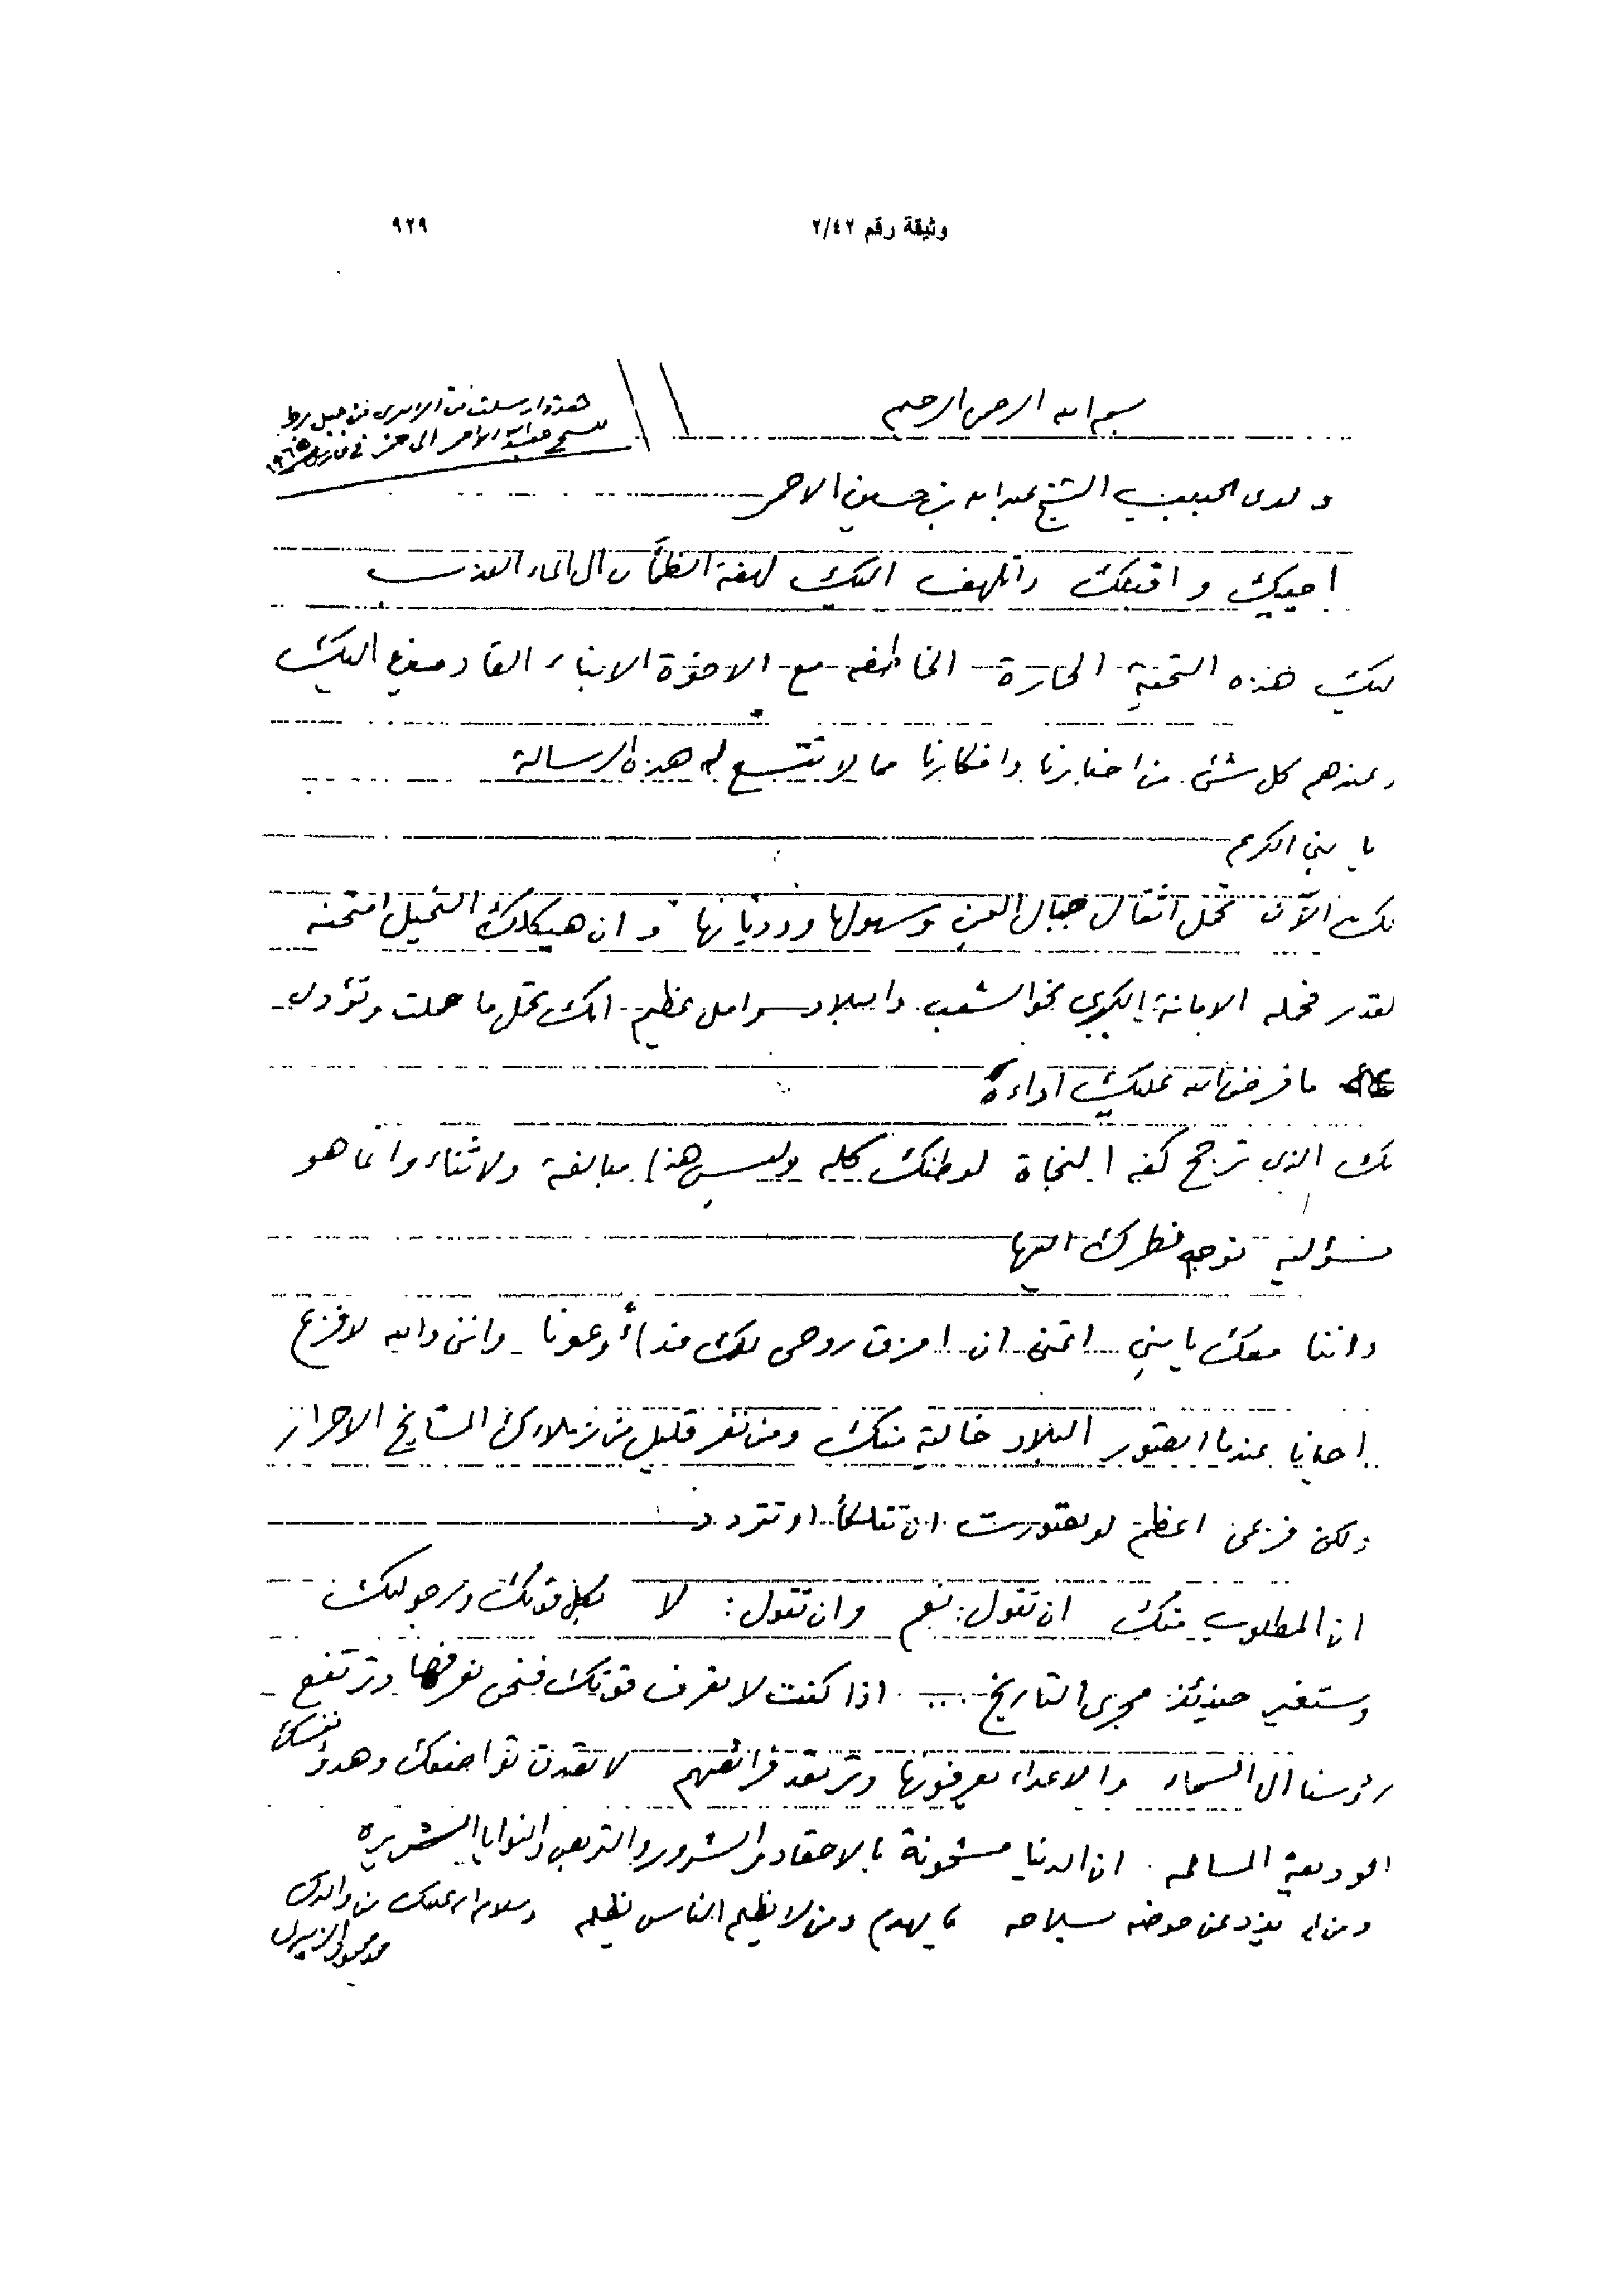 وثيقة رقم ٢/٤٢
٩٢٩
بسم الله الرحمن الرحيم
هذه ارسلت من من جبل برط
للشيخ عبدالله الاحمر الى في مارس ١٩٦٥
ولدى الحبيب الشيخ عبدالله بن حسين الاحمر
احييك واقبلك واتلهف اليك لهفة الظمآن الى الماء العذب
ليك هذه التحية الحارة الخاطفه مع الاخوة الابناء القادمين اليك
وعندهم كل شئ من اخبارنا وافكارنا مما لا تتسع له هذه الرسالة
يا بني الكريم
نك الآن تحمل اثقال جبال اليمن وسهولها ووديانها وان هيكلك النحيل امتحنه
لقدر فحمله الامانة الكبرى نحو الشعب والبلاد وامل عظيم انك تحمل ما حملت وتؤدى
ما فرض الله عليك اداءه
نك الذى ترجح كفه النجاة لوطنك كله وليس هذا مبالغة ولا ثناء وانما هو
سؤلية نوجه نظرك اليها
واننا معك يا بني اتمنى ان امزق روحى لك فداءً وعونا وانني والله لافزع
احيانا عندما اتصور البلاد خالية منك ومن نفر قليل من زملائك المشايخ الاحرار
ولكن فزعى اعظم لو تصورت ان تتلكأ او تتردد
ان المطلوب منك ان تقول: نعم وان تقول: لا بكل قوتك ورجولتك
وستغير حينئذ مجرى التاريخ .... اذا كنت لا تعرف قوتك فنحن نعرفها وترتفع
رؤوسنا الى السماء والاعداء يعرفونها وترتعد فرائصهم لا تواضعك وهدوء نفسك
الوديعة المسالمه . ان الدنيا مشحونة بالاحقاد والشرور والتربص والنوايا الشريره
ومن لم يذد عن حوضه بسلاحه يهدم ومن لا يظلم الناس يظلم وسلام الله عليك من والدك
محمد محمود الزبيرى